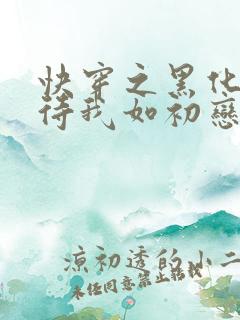 快穿之黑化
待我如初戀
凉初透的小二
未经同意禁止转载